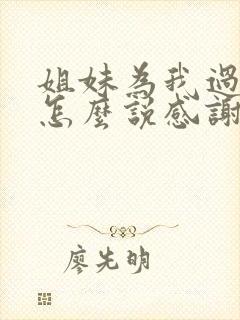 姐妹為我過
怎麼說感謝
廖先明